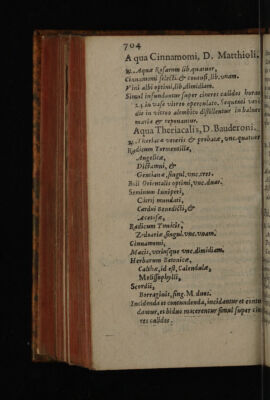 704
Aqua Cinnamomi, D. Matthioli.
℞. Aquæ Rosarum lib. quatuor,
Cinnamomi selecti & contusi, lib. vnam.
Vini albi optimi, lib. dimidiam.
Simul infundantur super cineres calidos horas
24. in vase vitreo operculato. Sequenti verò
die in vitreo alembico distillentur in balneo
mariæ & reponantur.
Aqua Theriacalis, D. Bauderoni.
℞. Theriacæ veteris & probatæ, vnc. quatuor
Radicum Tormentillæ,
Angelicæ,
Dictamni, &
Gentianæ, singul. vnc. tres.
Boli Orientalis optimi, vnc. duas.
Seminum Iuniperi,
Citrij mundati,
Cardui Benedicti, &
Acetosæ,
Radicum Tunicis,
Zeduariæ, singul. vnc. vnam.
Cinnamomi,
Macis, vtriusque vnc. dimidiam.
Herbarum Betonicæ,
Calthæ, id est, Calendulæ,
Melissophylli,
Scordii,
Borraginis, sing. M. duos.
Incidenda et contundenda, incidantur et contundantur, et biduo macerentur simul super cineres calidos.